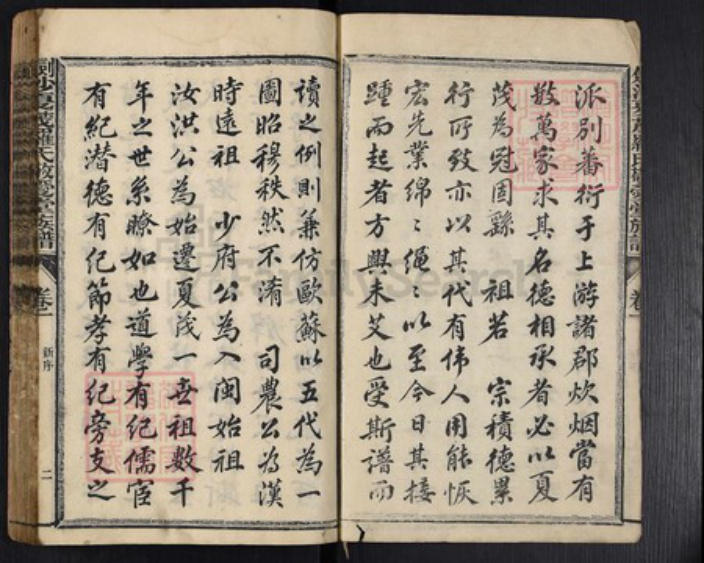 派別蕃衍于上游諸郡炊烟當有
数萬家求其名德相承者必以夏
茂為冠固繇 祖若 宗積德累
行所致亦以其代有偉人用能恢
宏先業綿〻繩〻以至今日其接
踵而起者方興未艾也受斯譜而
讀之例則兼仿歐蘇以五代為一
圖昭穆秩然不淆 司農公為漢
時遠祖 少府公為入閩始祖
汝洪公為始遷夏茂一世祖数千
年之世系瞭如也道學有紀儒宦
有紀潜德有紀節孝有紀旁支之
卷一
新序
二
FamilySearch